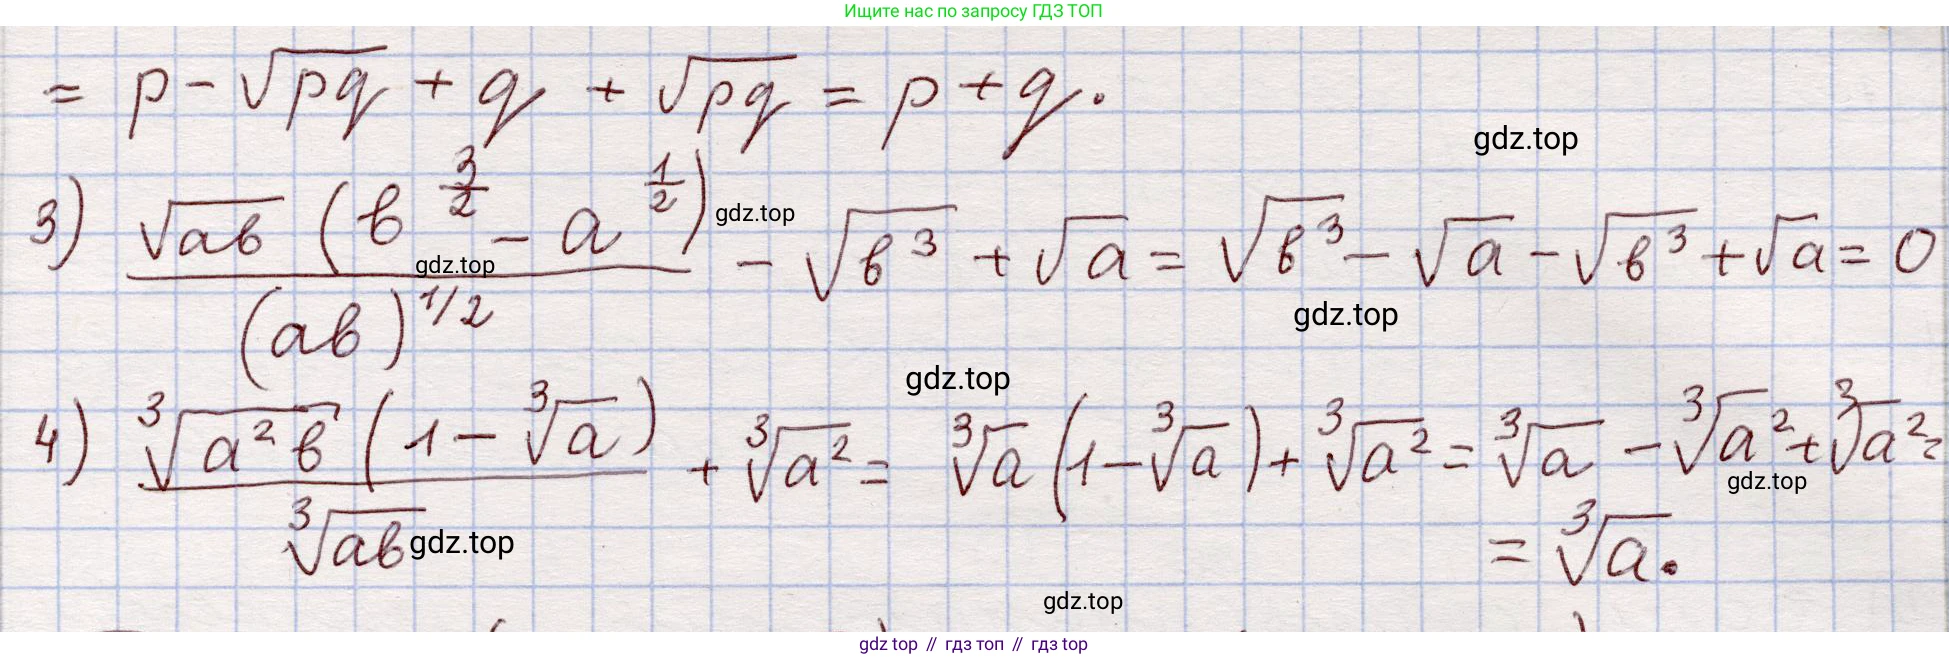 Ищите нас по запросу ГДЗ ТОП
= p - √pq + q + √pq = p + q.
gdz.top
3) √ab (b^(3/2) - a^(1/2)) / (ab)^(1/2) - √b³ + √a = √b³ - √a - √b³ + √a = 0
gdz.top
gdz.top
gdz.top
gdz.top
4) ∛a²b (1 - ∛a) / ∛ab + ∛a² = ∛a (1 - ∛a) + ∛a² = ∛a - ∛a² + ∛a² =
gdz.top
= ∛a.
gdz.top
gdz.top
gdz top // гдз топ // гдз top